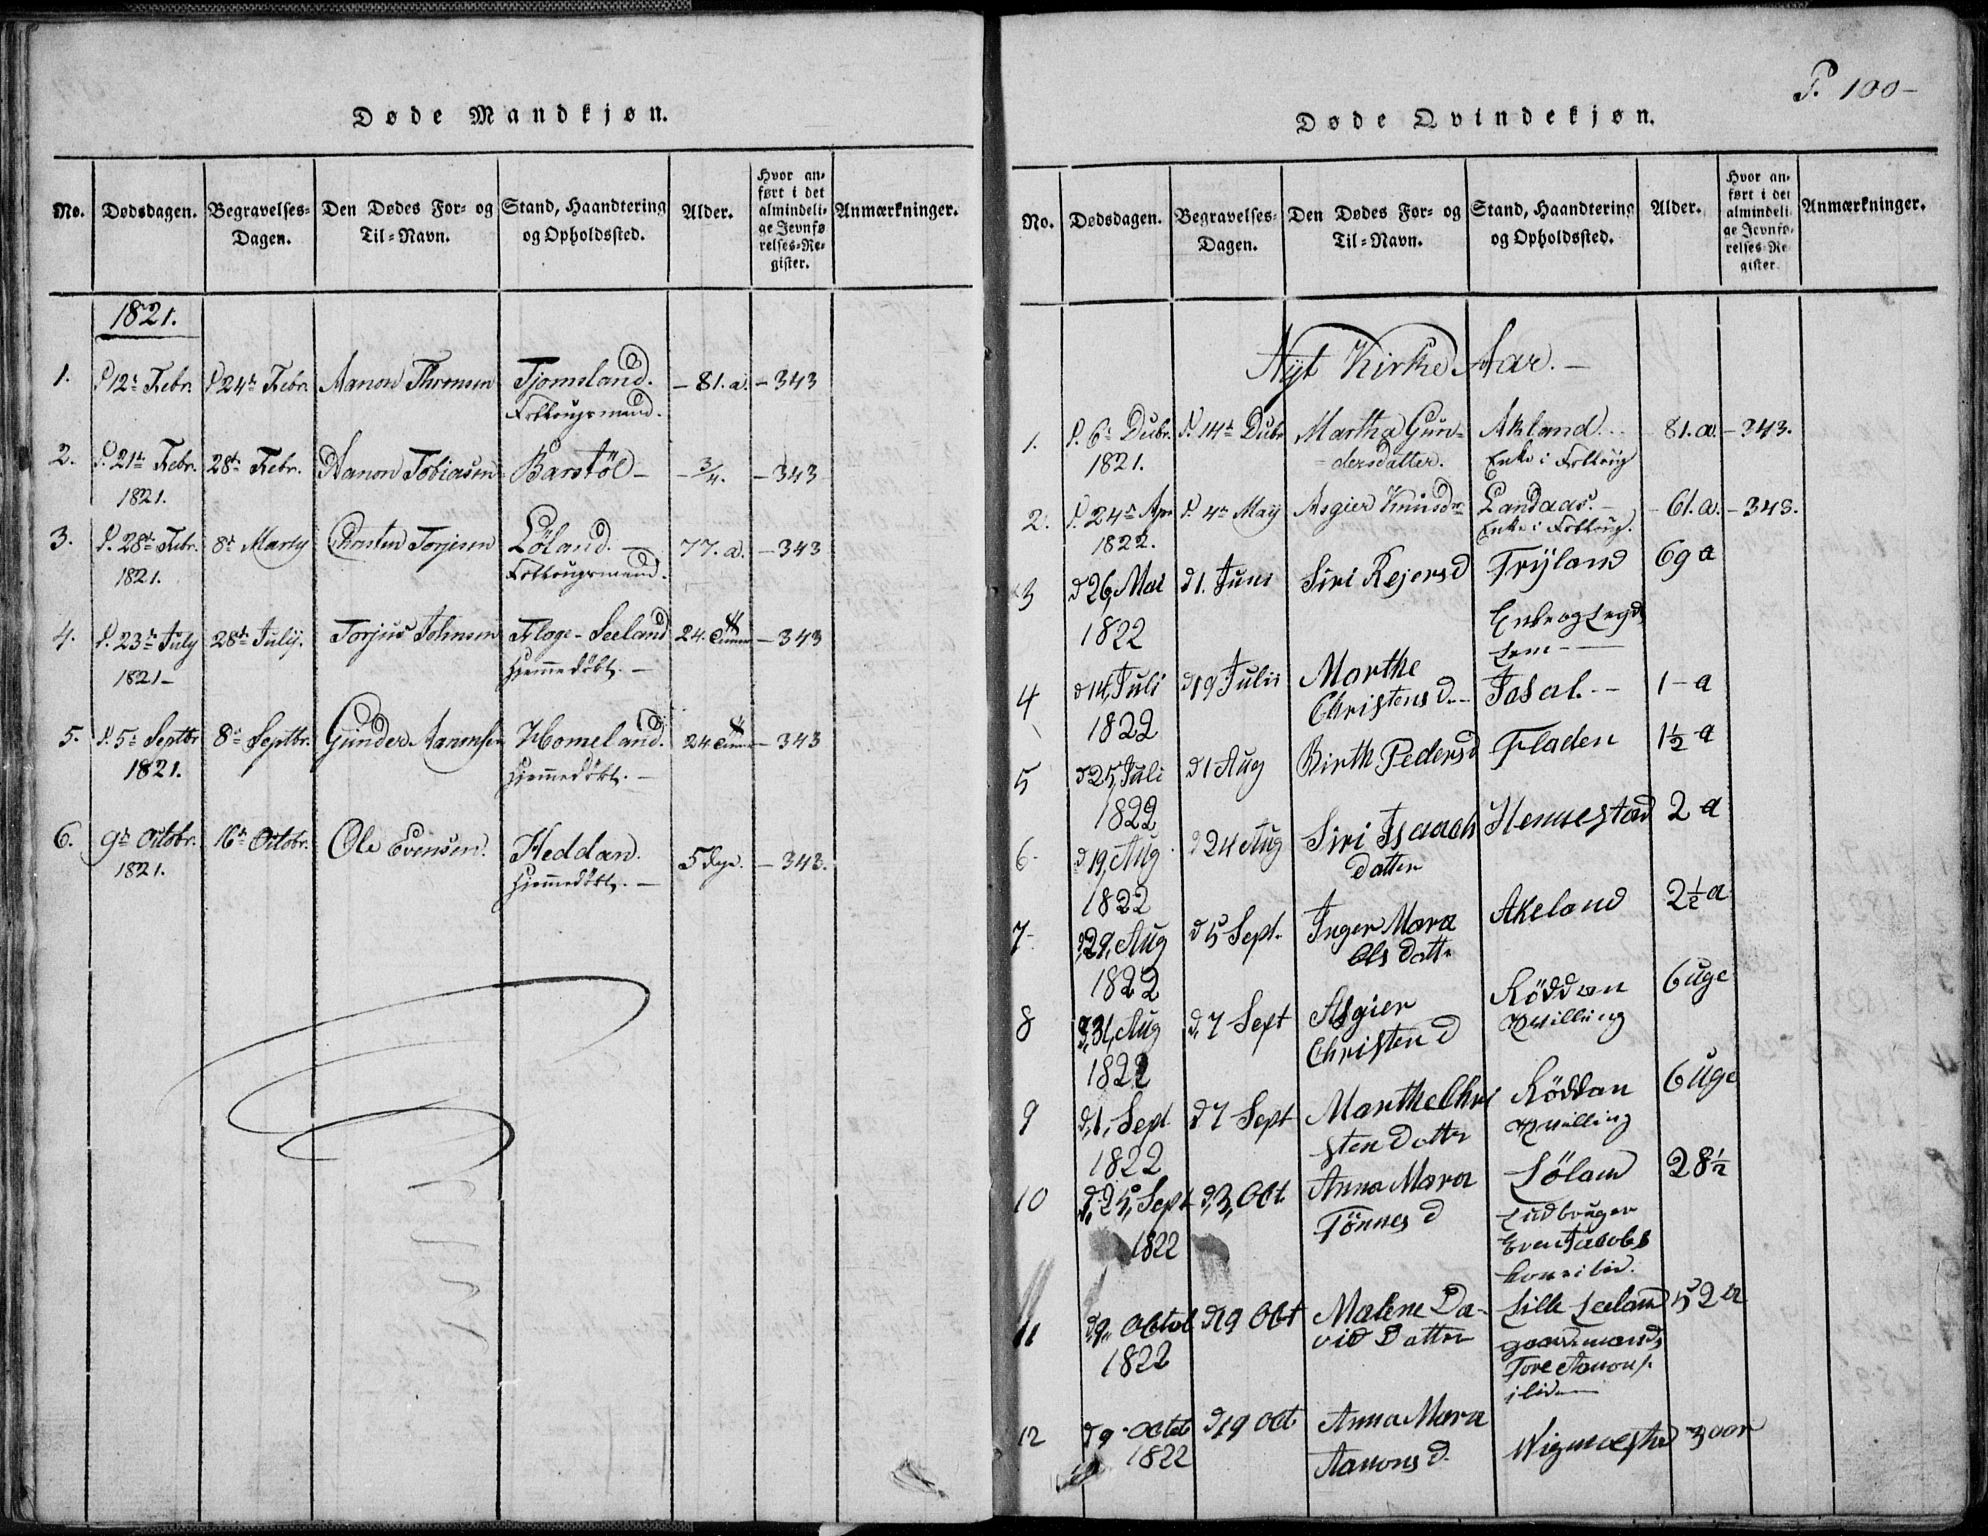 Døde Mandkjøn.
No. Dødsdagen. Begravelses-Dagen. Den Dødes For- og Til-Navn. Stand, Haandtering og Opholdssted. Alder. Hvor anført i det almindelige Jevnførelses-Register. Anmærkninger.
1821.
1. d 12te Febr. d 24de Febr. Aanon Thronsen Tjomsland. – 81. a. – 343
Folkougsmand.
2. d. 21de Febr. 28de Febr. Aanon Tobiasen Barstöl – – 3/4. – 343
1821.
3. d. 28de Febr. 8de Martij Christen Torjesen Löland. – 77. a. – 343
1821. Folkougsmand.
4. d. 23de July 28de Julij. Torjus Johnsen Floge-Seeland 24. Timer – 343
1821 – Hjemmedöbt. –
5. d. 5te Septbr 8de Septbr. Gunder Aanonsen Homeland. 24 Timer – 343
1821. Hjemmedöbt. –
6. 9de Octobr. 16de Octobr. Ole Evensen. Heddan. 5 Dage. – 343.
1821. Hjemmedöbt. –
P. 100 –
Døde Qvindekjøn.
No. Dødsdagen. Begravelses-Dagen. Den Dødes For- og Til-Navn. Stand, Haandtering og Opholdssted. Alder. Hvor anført i det almindelige Jevnførelses-Register. Anmærkninger.
Nyt Kirke Aar. –
1. d. 6te Decbr. d. 14de Decbr Martha Gun- Akland. 81. a. – 343.
1821. dersdatter. Enke i Folkoug
2. d. 24de Apr d. 4de May Asgier Knudsdr Landaas. – 61. a. – 343.
1822. Enke i Folkoug.
3 d 26, Mai d 1. Juni Siri Rejersd Fryland 69 a
1822 Enke og Legds
Lem –
4 d 14, Juli d 19 Julii Marthe
Christensd. Josal. – 1 – a
1822
5 d 25, Juli d 1 Aug Birthe Pedersd Fladen 1½ a
1822
6 d 19, Aug d 24 Aug Siri Isaach Hennestad 2 a
1822 datter
7 d 29, Aug d 5 Sept. Inger Mara Akeland 2½ a
1822 Olsdatt.
8 d, 31, Aug d, 7 Sept Asgier Röddan 6 Uge
1822 Christend Tvilling
9 d, 1, Sept d 7 Sept Marthe Chri Röddan 6 Uge
1822 stendatter Tvilling
10 d, 25, Sept d, 3, Oct. Anna Mara Lölam 28½
1822 Tönnesd Ludbruger
Even Jacobs
kone ibid.
11 d 9, Octob d 19 Oct Malene Da- Lille Seeland 52 a
1822 vid Datter gaardmands
Tore Aanons.
ibid. –
12 d 9 Octob d 19 Oct Anna Mara
1822 Aanonsd. Wigmoestad 3 aar